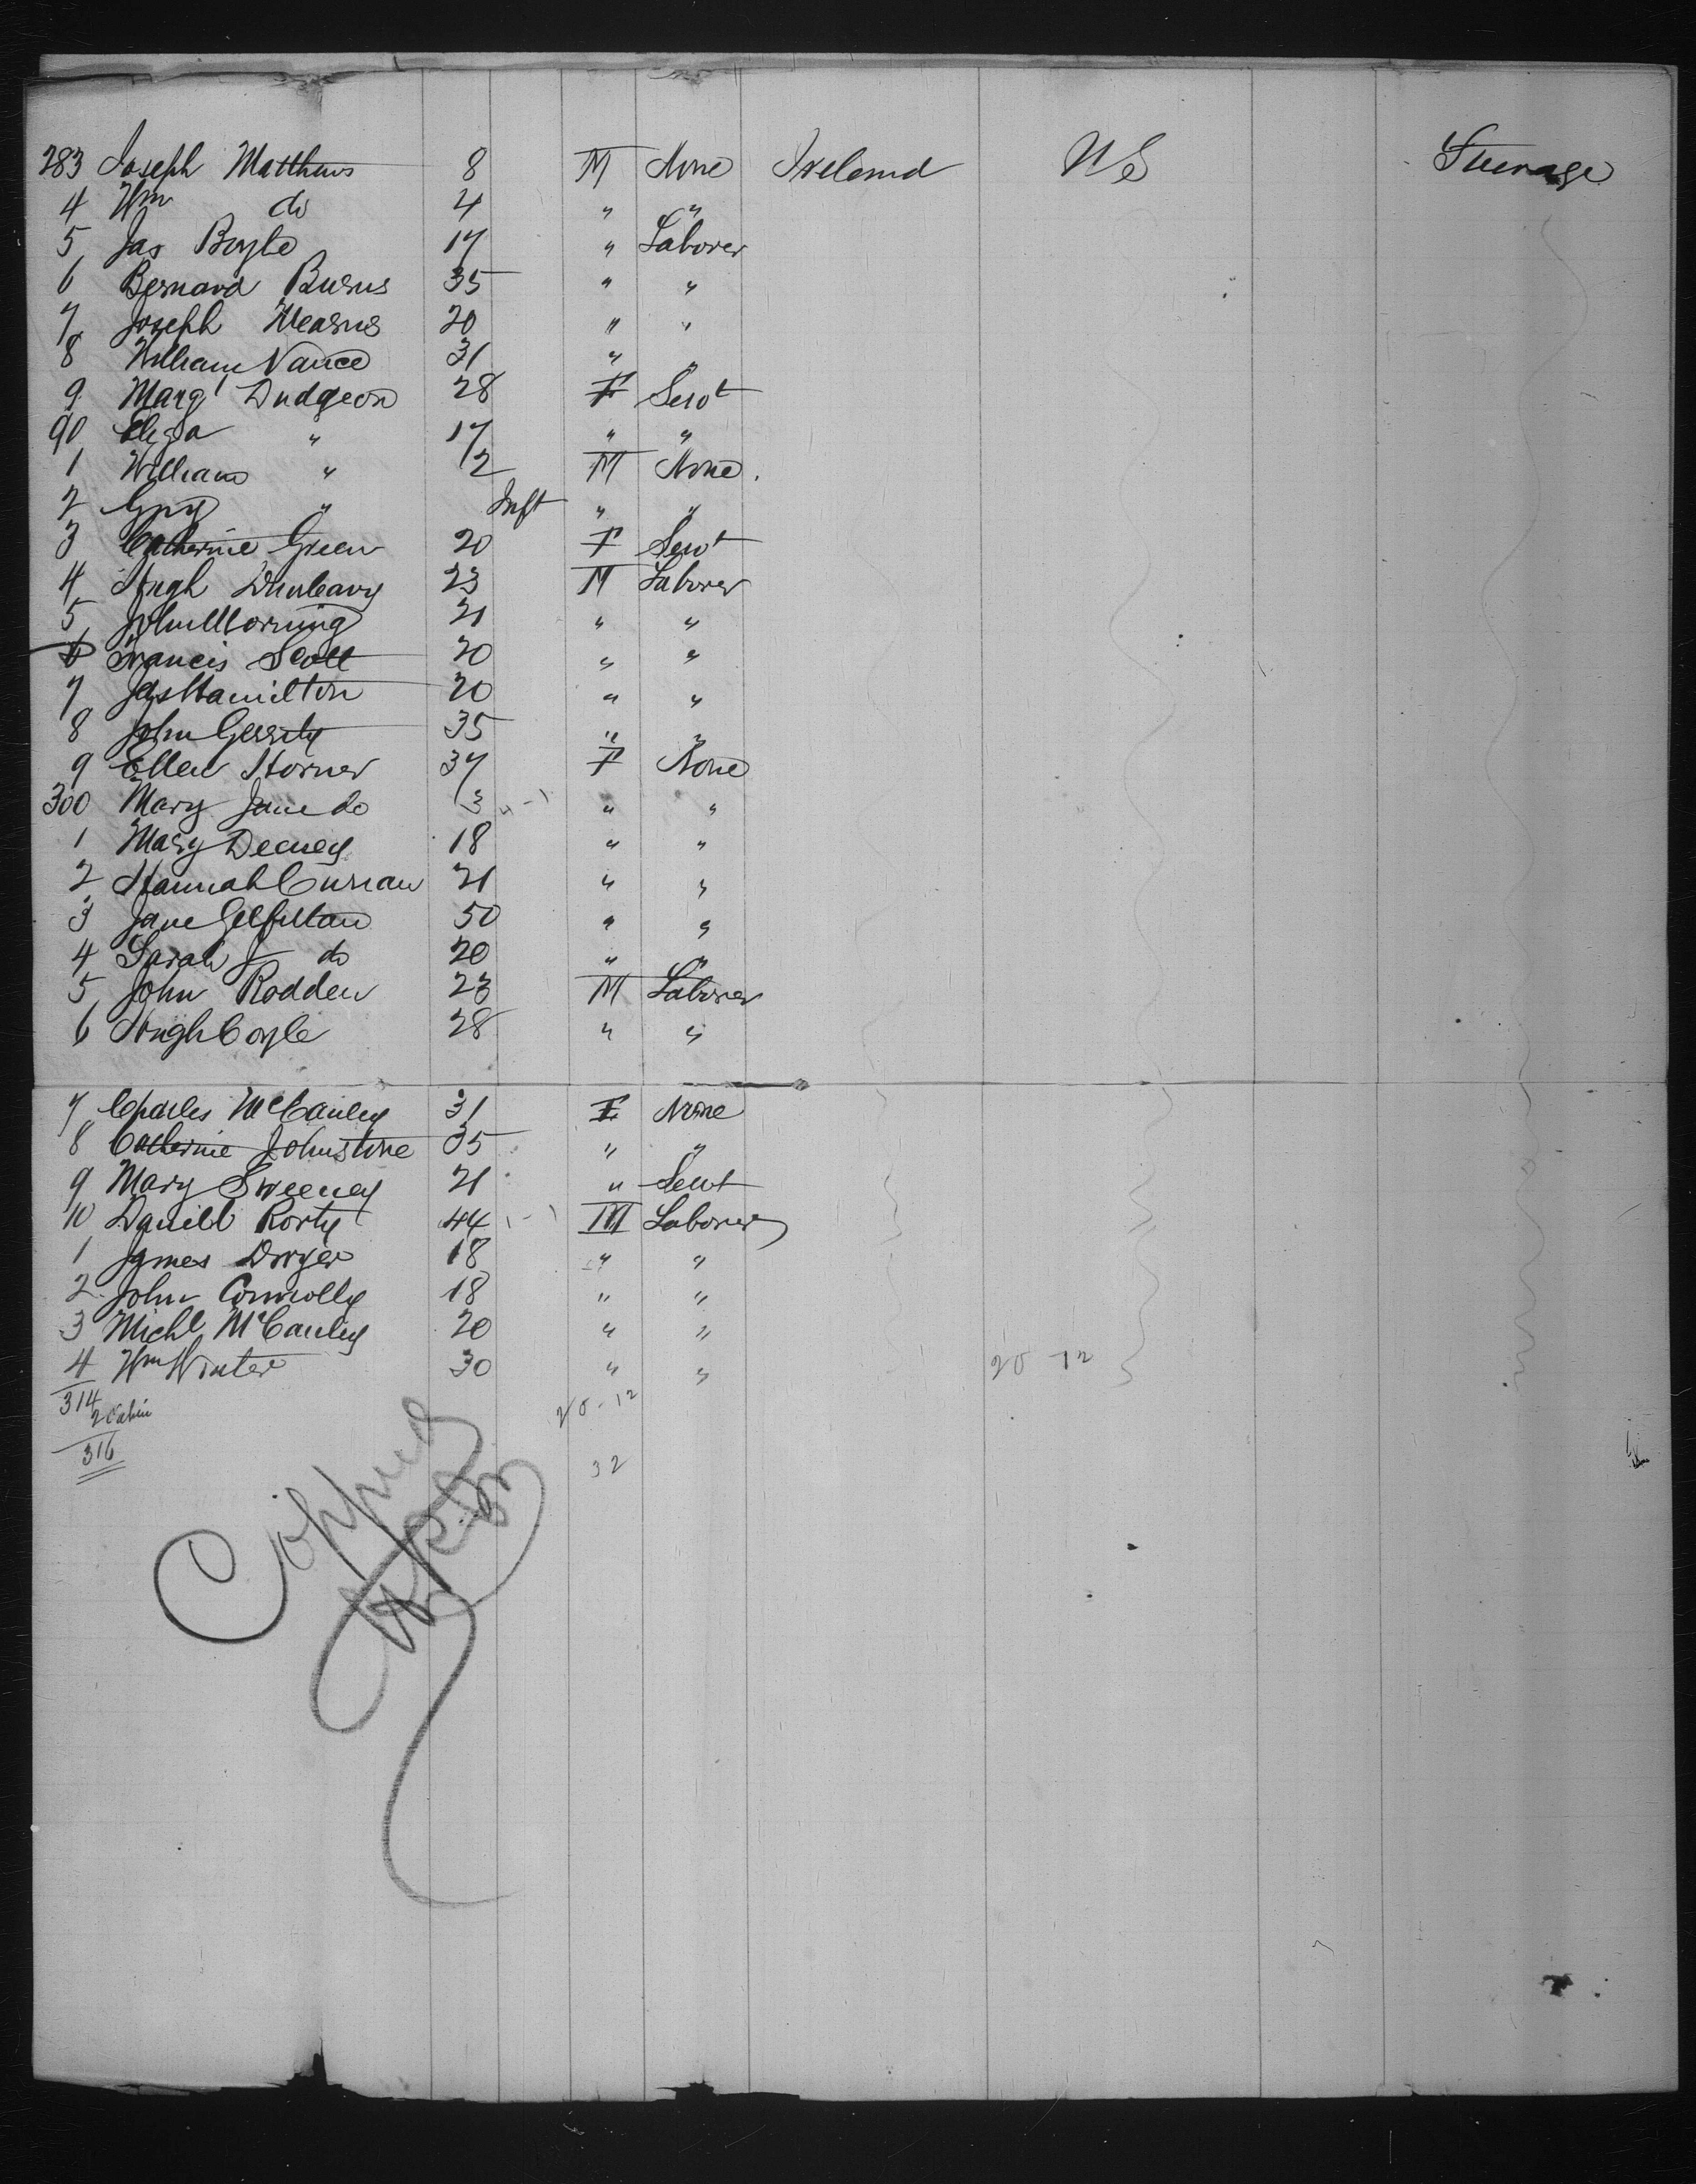 283 Joseph Matthews 8 M None Ireland US Steerage
4 Wm do 4 " "
5 Jas Boyle 17 " Laborer
6 Bernard Burns 35 " "
7 Joseph Mearns 20 " "
8 William Vance 31 " "
9 Margt Dudgeon 28 F Servt
90 Eliza " 17 " "
1 William " 2 M None
2 Guy " Inft " "
3 Catherine Green 20 F Servt
4 Hugh Dunleavy 23 M Laborer
5 John Morning 21 " "
6 Francis Scott 20 " "
7 Jas Hamilton 20 " "
8 John Gerrity 35 " "
9 Ellen Horner 37 F None
300 Mary Jane do 3 " "
1 Mary Deeney 18 " "
2 Hannah Curran 21 " "
3 Jane Gilfillan 50 " "
4 Sarah J do 20 " "
5 John Rodden 23 M Laborer
6 Hugh Coyle 28 " "
7 Charles McCauley 31 F None
8 Catherine Johnstone 35 " "
9 Mary Sweeney 21 " Servt
10 Daniel Rorty 44 1-1 M Laborer
1 James Dwyer 18 " "
2 John Connolly 18 " "
3 Michl McCauley 20 " "
4 Wm Winter 30 " " 20-12
314 20-12
2 Cabin
316 32
Copied